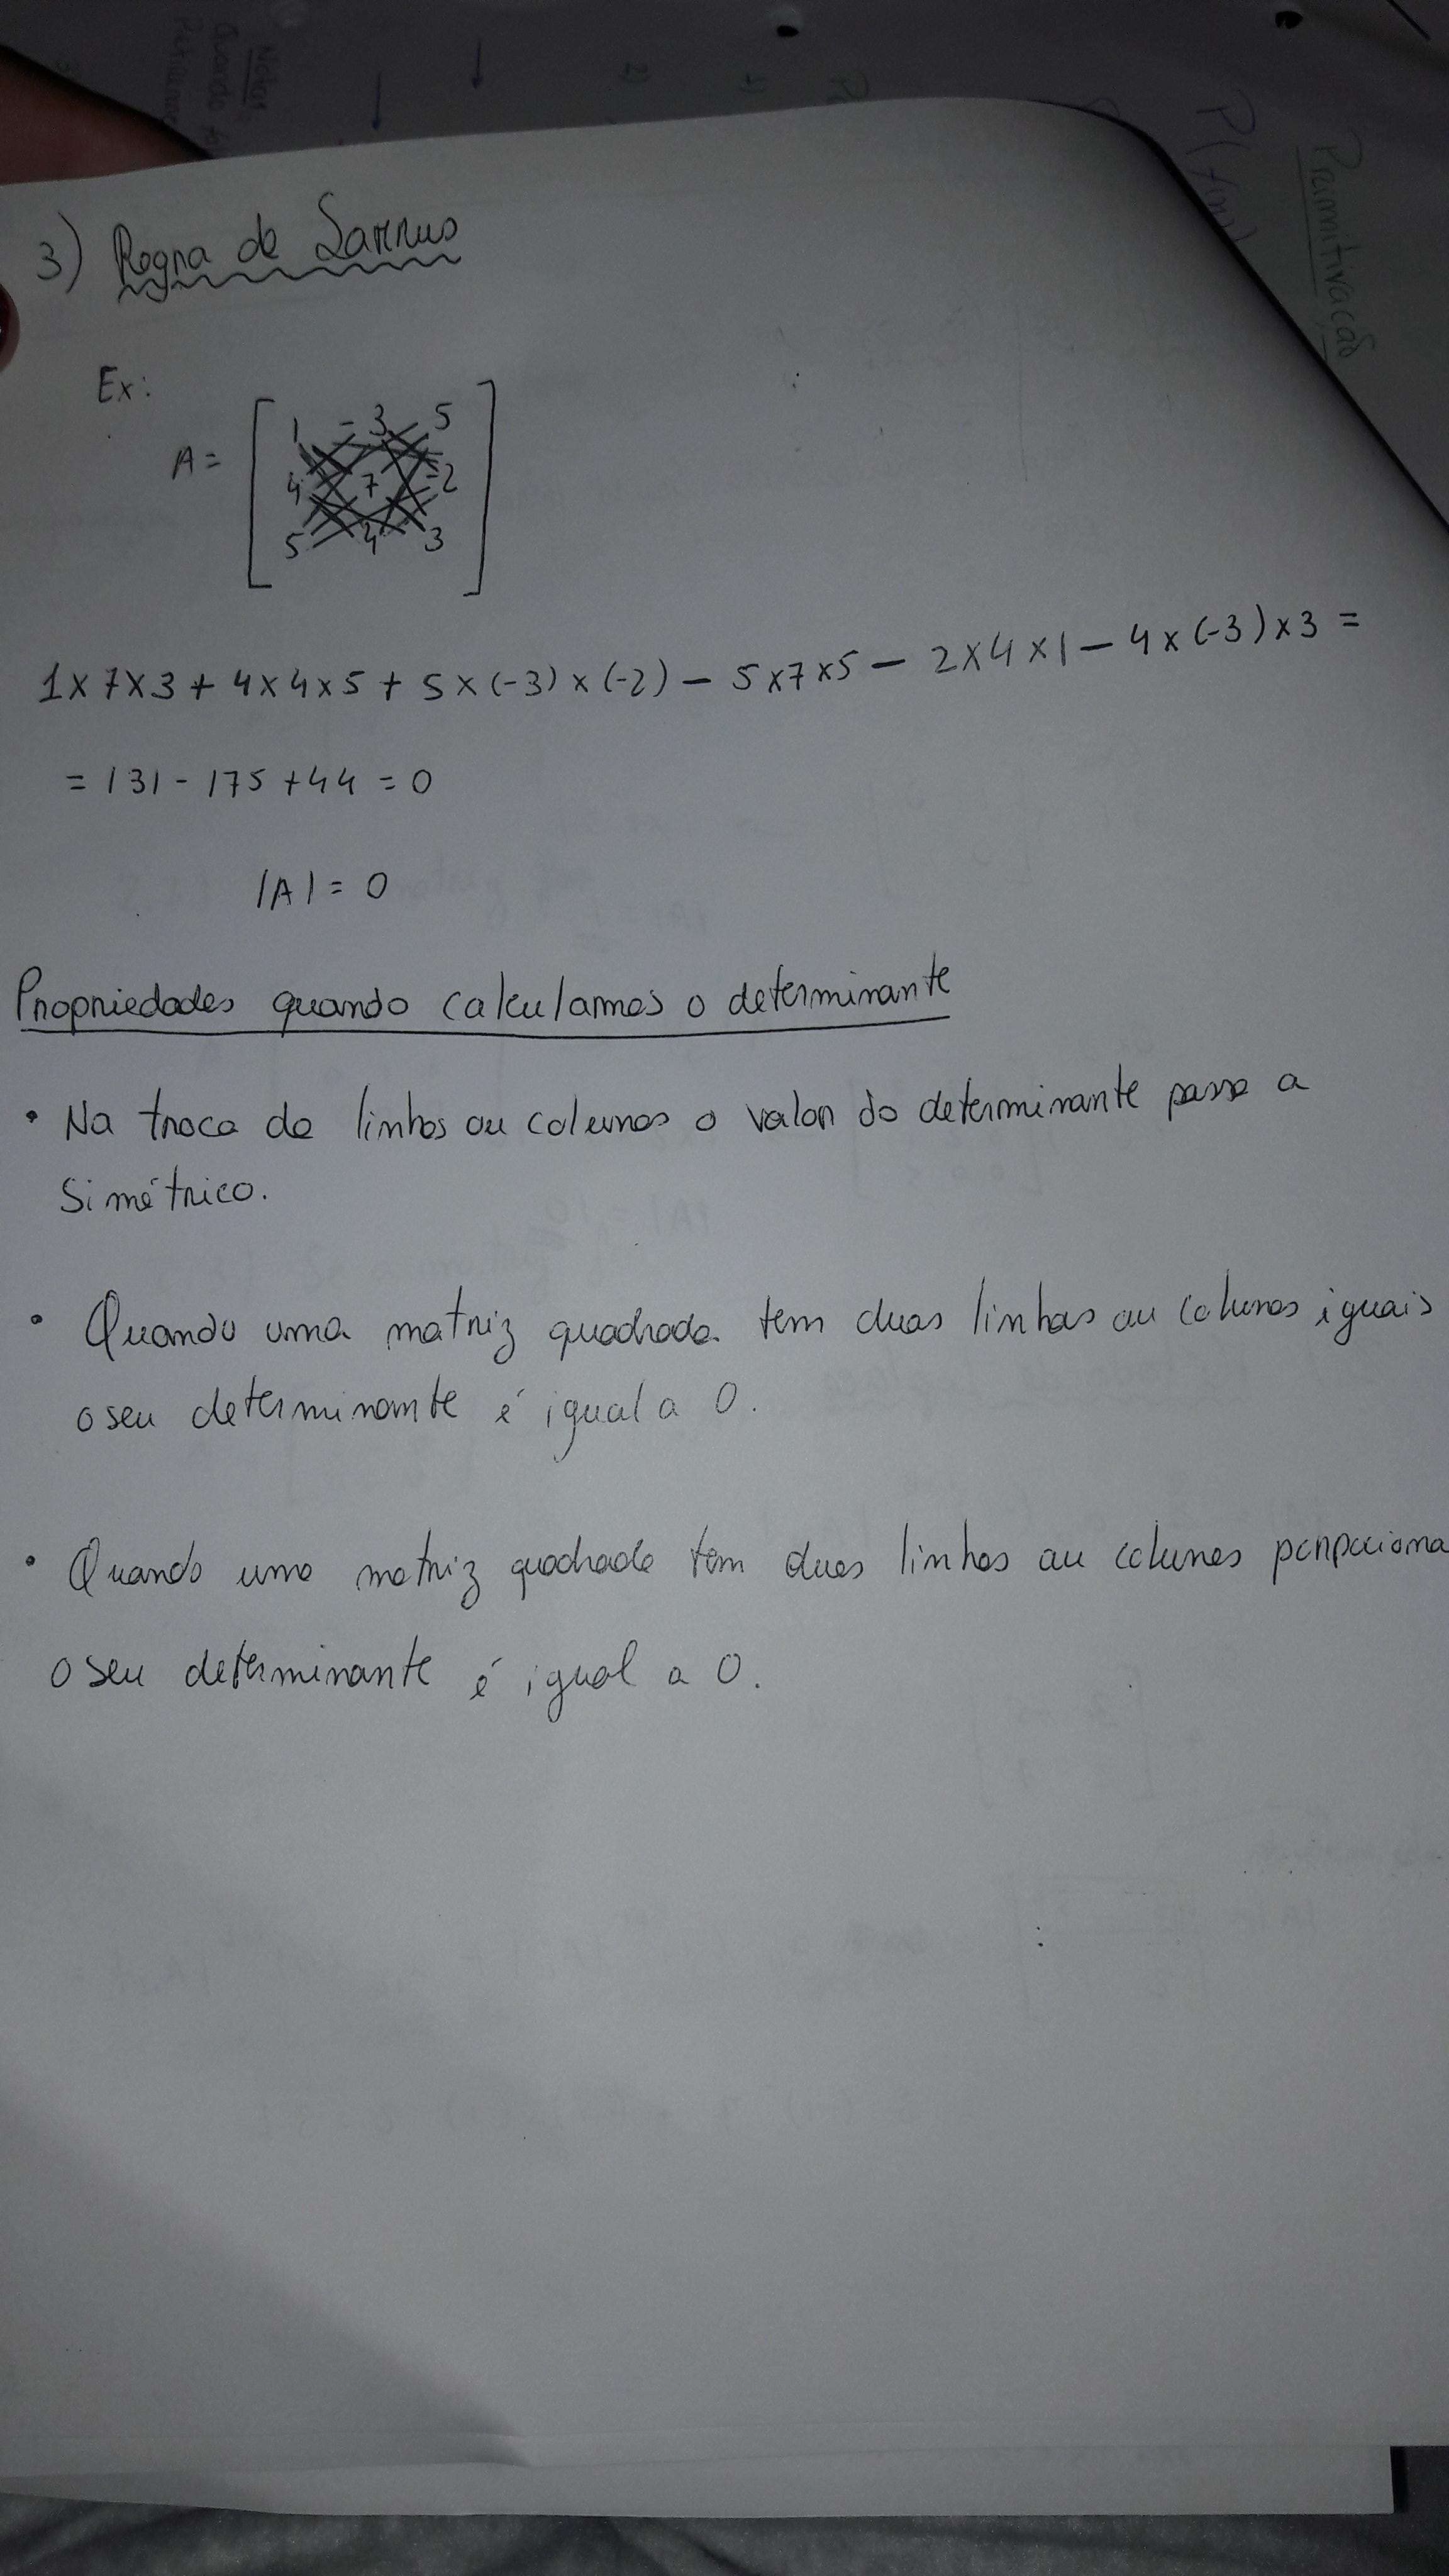 Notas
Quando
Primitivação
3) Regra de Sarrus
Ex:
A = [ 1 -3 5
4 7 -2
5 4 3 ]
1x7x3 + 4x4x5 + 5x(-3)x(-2) - 5x7x5 - 2x4x1 - 4x(-3)x3 =
= 131 - 175 + 44 = 0
|A| = 0
Propriedades quando calculamos o determinante
• Na troca de linhas ou colunas o valor do determinante passa a
simétrico.
• Quando uma matriz quadrada tem duas linhas ou colunas iguais
o seu determinante é igual a 0.
• Quando uma matriz quadrada tem duas linhas ou colunas porporciona
o seu determinante é igual a 0.